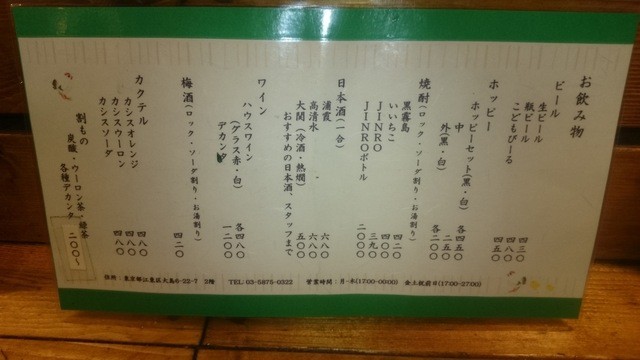 お飲み物
ビール
生ビール 四三〇
瓶ビール 四八〇
こどもびーる 四五〇
ホッピー
ホッピーセット(黒・白) 各四五〇
中 二五〇
外(黒・白) 各二〇〇
焼酎(ロック・ソーダ割り・お湯割り)
黒霧島 四二〇
いいちこ 四〇〇
JINRO 三九〇
JINROボトル 二〇〇〇
日本酒(一合)
浦霞 六八〇
高清水 六八〇
大関(冷酒・熱燗) 五〇〇
おすすめの日本酒、スタッフまで
ワイン
ハウスワイン
(グラス赤・白) 各四八〇
デカンタ 一二〇〇
梅酒(ロック・ソーダ割り・お湯割り) 四二〇
カクテル
カシスオレンジ 四八〇
カシスウーロン 四八〇
カシスソーダ 四八〇
割もの
炭酸・ウーロン茶・緑茶
各種デカンタ 二〇〇〜
住所:東京都江東区大島6-22-7 2階 TEL:03-5875-0322 営業時間:月-木(17:00-00:00) 金土祝前日(17:00-27:00)